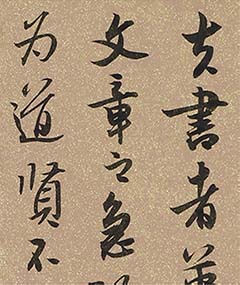 夫書者
文章之急
為道賢不